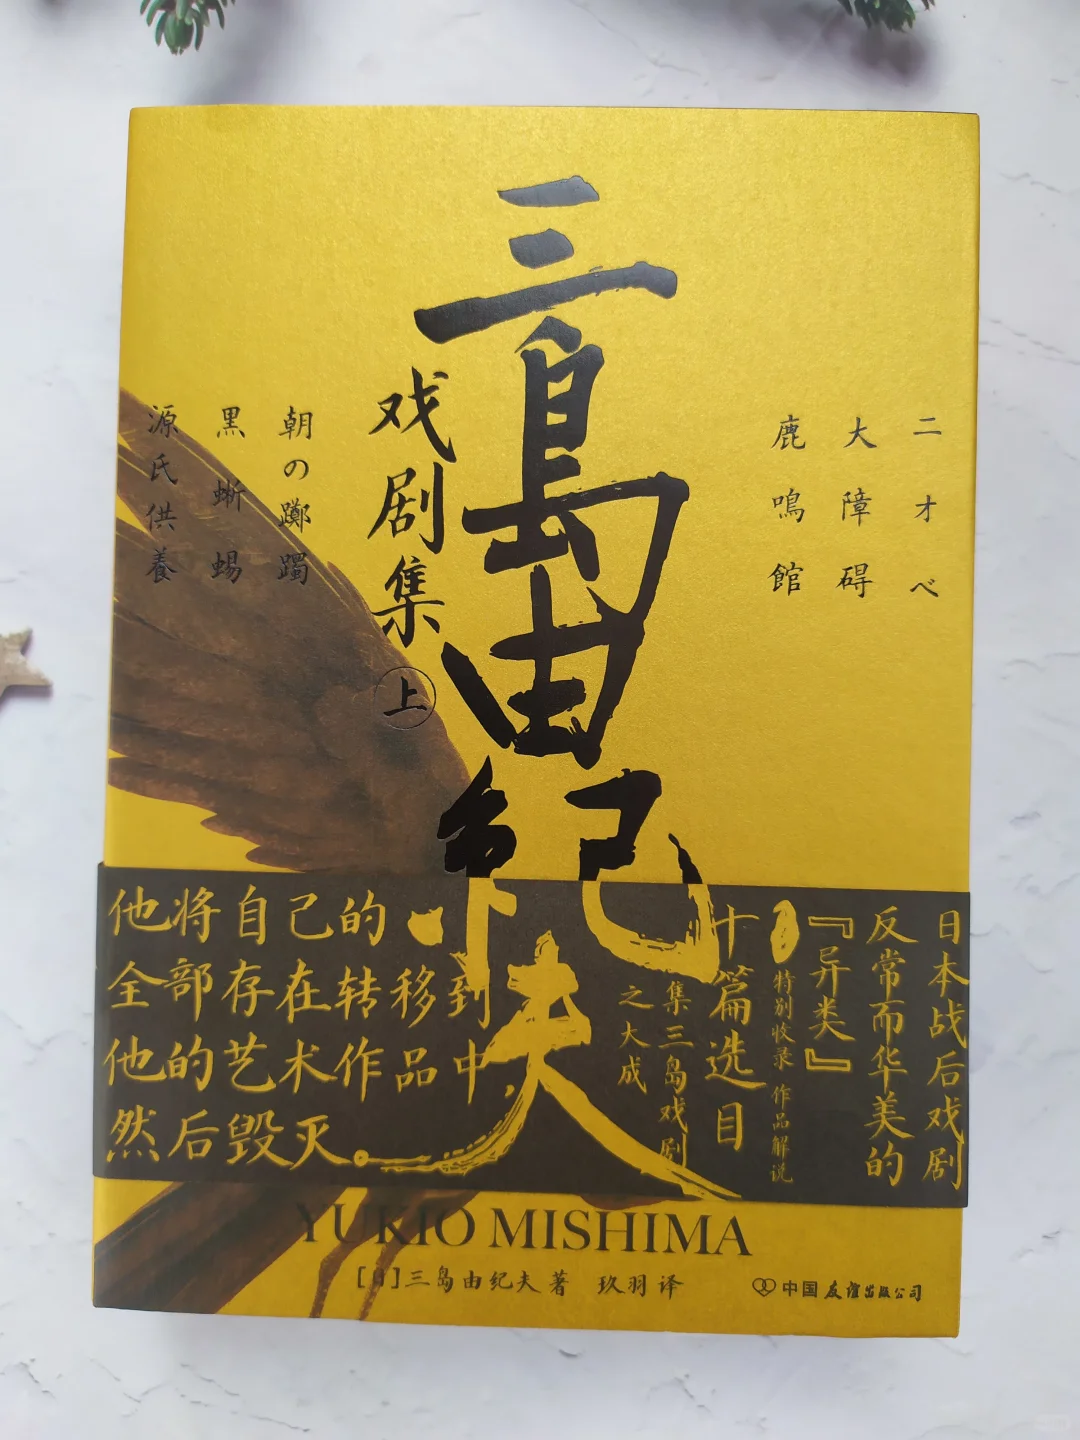 三島由紀夫
戏剧集
上
二オベ
大障碍
鹿鳴館
朝の躑躅
黒蜥蜴
源氏供養
他将自己的
全部存在转移到
他的艺术作品中，
然后毁灭。
日本战后戏剧
反常而华美的
『异类』
特别收录 作品解说
十篇选目
集三岛戏剧
之大成
YUKIO MISHIMA
[日]三岛由纪夫 著 玖羽 译
中国友谊出版公司